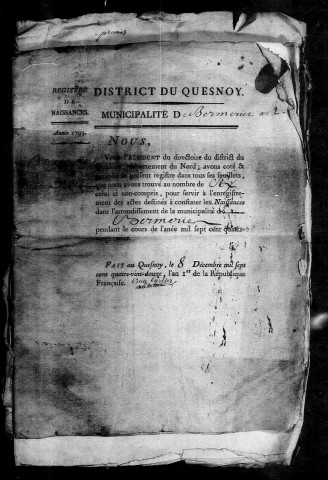 premier
REGISTRE
DE
NAISSANCES.
DISTRICT DU QUESNOY.
MUNICIPALITÉ D Bermerie
Année 1793.
NOUS,
Vice-PRÉSIDENT du directoire du district du
département du Nord; avons coté &
le présent registre dans tous ses feuillets,
que nous avons trouvé au nombre de Six
celui ci non-compris, pour servir à l'enregistre-
ment des actes destinés à constater les Naissances
dans l'arrondissement de la municipalité de
Bermerie
pendant le cours de l'année mil sept cent quatre-
FAIT au Quesnoy, le 8 Décembre mil sept
cent quatre-vint-douze, l'an 1er de la République
Française.